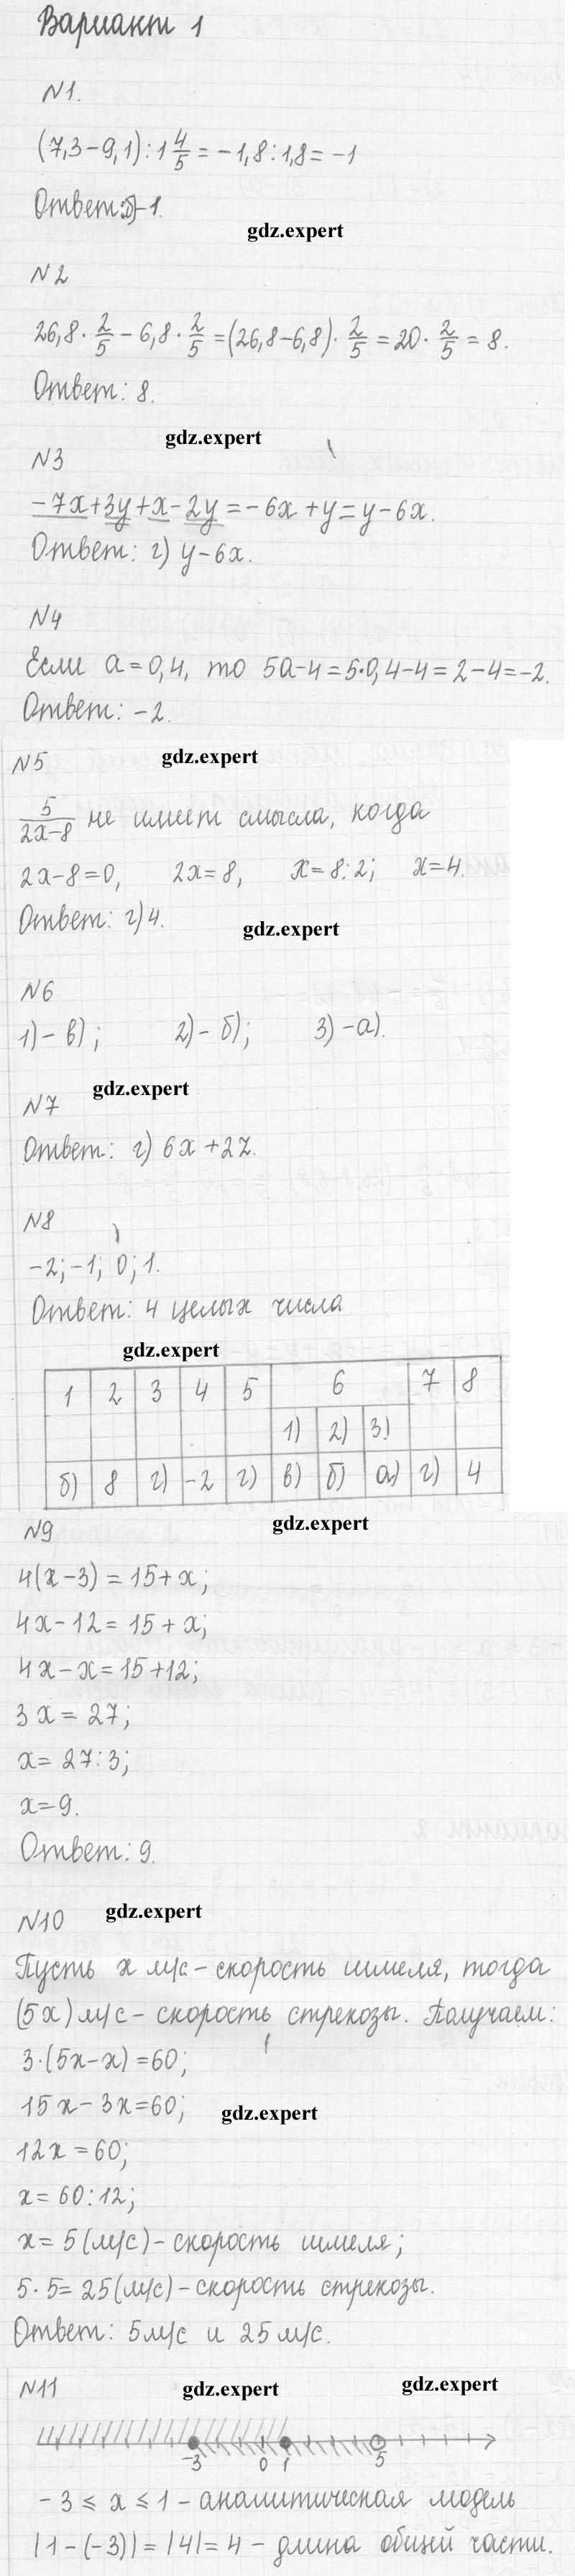 Вариант 1
№1.
(7,3-9,1):1 4/5 = -1,8:1,8 = -1
Ответ: б)-1.
gdz.expert
№2
26,8 · 2/5 - 6,8 · 2/5 = (26,8-6,8) · 2/5 = 20 · 2/5 = 8.
Ответ: 8.
gdz.expert
№3
-7x+3y+x-2y=-6x+y=y-6x.
Ответ: г) y-6x.
№4
Если a=0,4, то 5a-4=5·0,4-4=2-4=-2.
Ответ: -2.
gdz.expert
№5
5/(2x-8) не имеет смысла, когда
2x-8=0, 2x=8, x=8:2; x=4.
Ответ: г)4.
gdz.expert
№6
1)-в); 2)-б); 3)-а).
gdz.expert
№7
Ответ: г) 6x+2z.
№8
-2;-1; 0; 1.
Ответ: 4 целых числа
gdz.expert
1 2 3 4 5 6 7 8
1) 2) 3)
б) 8 г) -2 г) в) б) а) г) 4
gdz.expert
№9
4(x-3)=15+x;
4x-12=15+x;
4x-x=15+12;
3x=27;
x=27:3;
x=9.
Ответ: 9.
gdz.expert
№10
Пусть x м/с - скорость шмеля, тогда
(5x) м/с - скорость стрекозы. Получаем:
3·(5x-x)=60;
15x-3x=60;
gdz.expert
12x=60;
x=60:12;
x=5(м/с)-скорость шмеля;
5·5=25(м/с)-скорость стрекозы.
Ответ: 5м/с и 25м/с.
№11
gdz.expert
gdz.expert
-3 0 1 5
-3 ≤ x ≤ 1 - аналитическая модель
|1-(-3)|=|4|=4 - длина общей части.